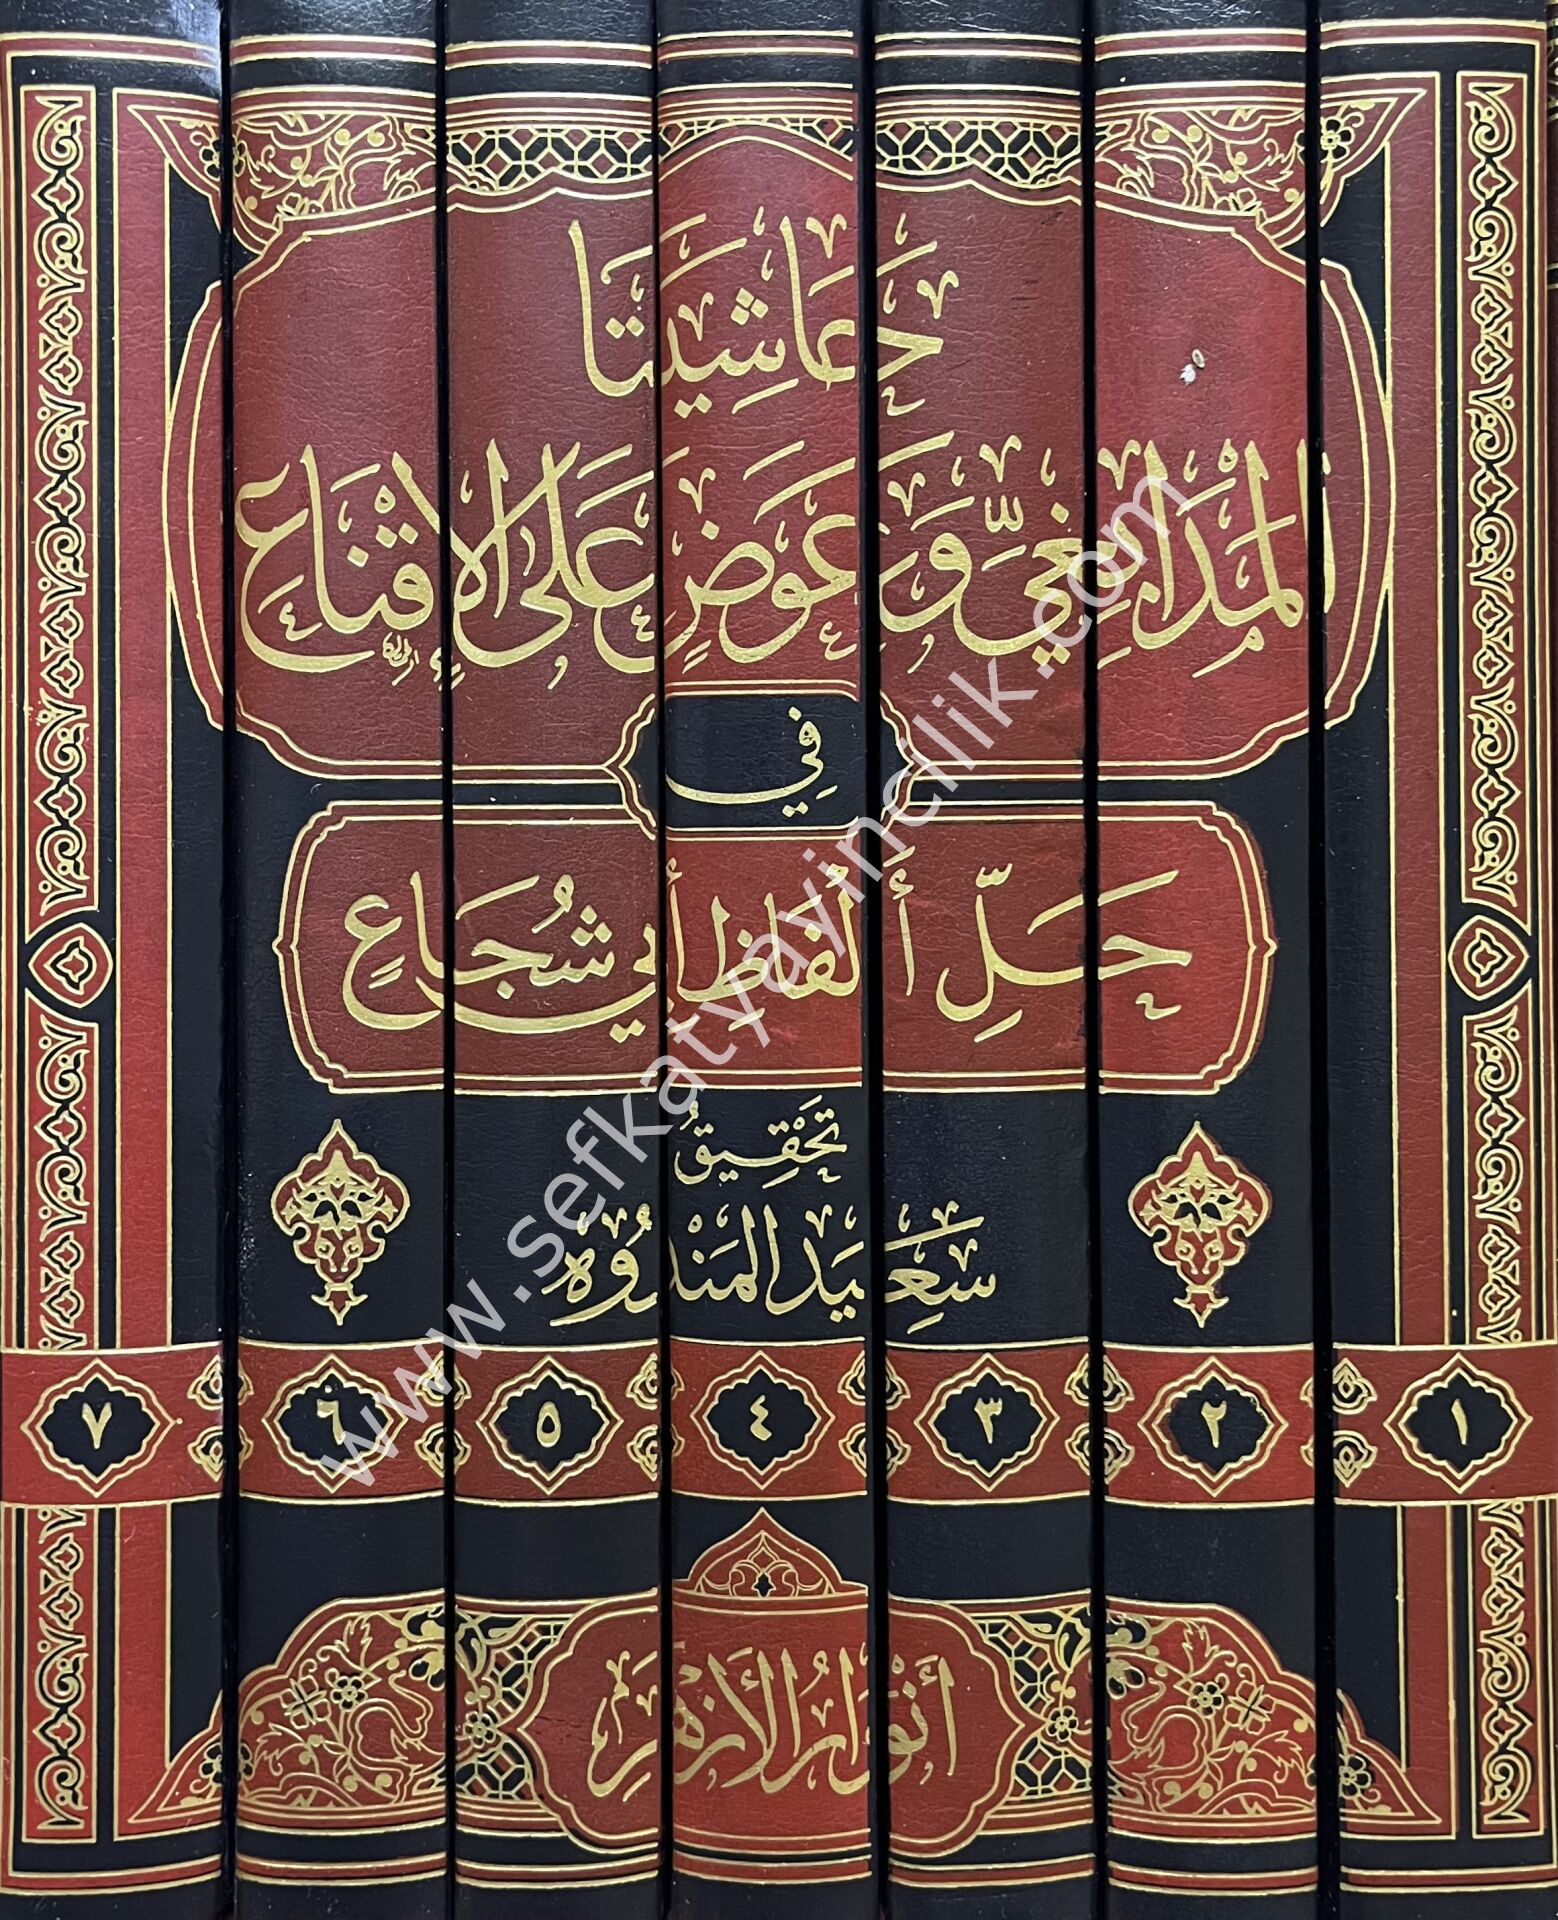 حَاشِيَتَا
المَدَابِغِيِّ وَعِوَضٍ عَلَى الإِقْنَاع
فِي
حَلِّ أَلْفَاظِ أَبِي شُجَاعٍ
تَحْقِيقُ
سَعِيد المَنْدُوْه
٧ ٦ ٥ ٤ ٣ ٢ ١
أَنْوَارُ الأَزْهَر
www.sefkatyayincilik.com